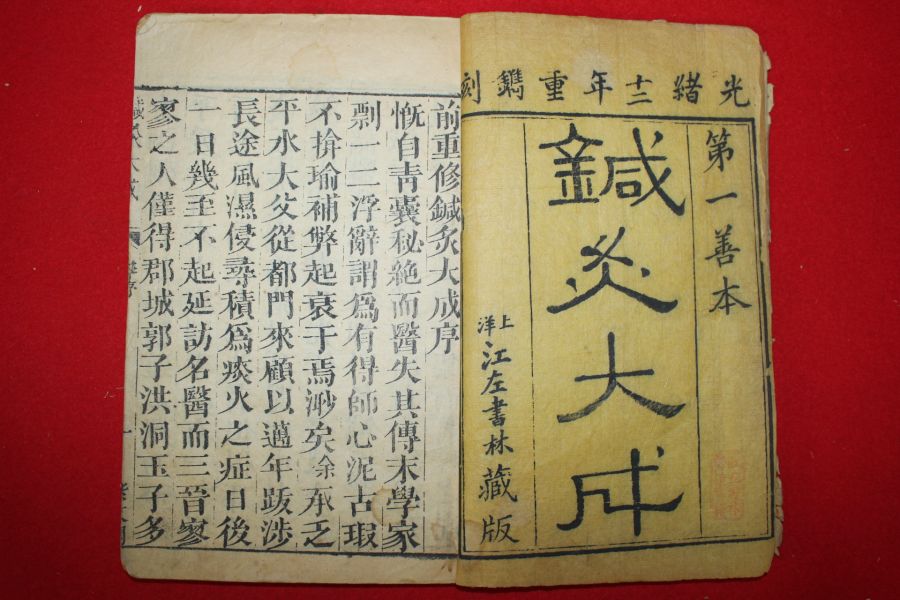 光緒十二年重鐫刻
第一善本
鍼灸大成
上洋江左書林藏版
前重修鍼灸大成序
慨自青囊秘絶而醫失其傳末學家
剽一二浮辭謂爲有得師心泥古瑕
不揜瑜補弊起衰于焉渺矣余承乏
平水大父從都門來顧以邁年跋涉
長途風濕侵尋積爲痰火之症日後
一日幾至不起延訪名醫而三晉寥
寥之人僅得郡城郭子洪洞玉子多
鍼灸大成